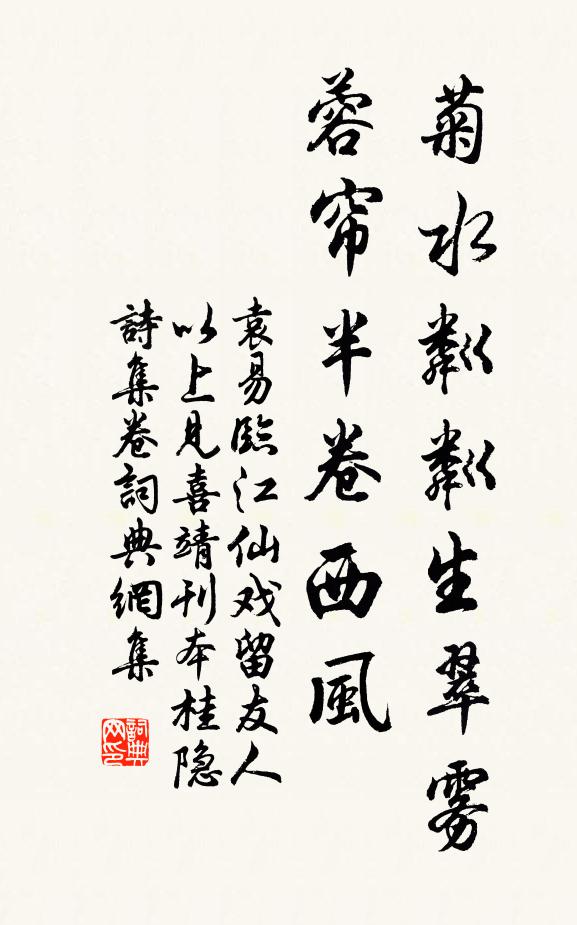 菊水粼粼生翠雾
蓉帘半卷西風
袁易臨江仙戏留友人
以上見喜靖刊本桂隐
詩集卷詞典網集
詞典网印